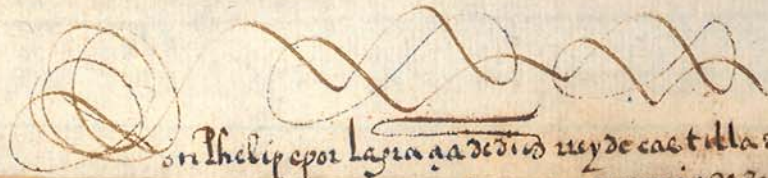 Don Phelipe por la graçia de dios rrey de castilla